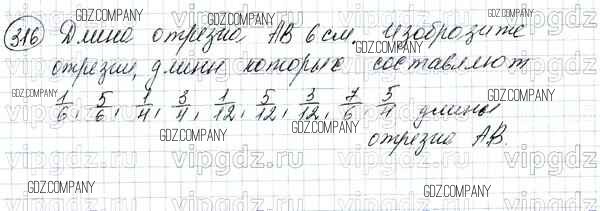 GDZ.COMPANY GDZ.COMPANY GDZ.COMPANY
316 Длина отрезка АВ 6 см. Изобразите
отрезки, длины которых составляют
vipgdz.ru vipgdz.ru vipgdz.ru
GDZ.COMPANY GDZ.COMPANY GDZ.COMPANY
1/6, 5/6, 1/4, 3/4, 1/12, 5/12, 3/12, 7/6 5/4 длины
GDZ.COMPANY GDZ.COMPANY GDZ.COMPANY
отрезка АВ.
vipgdz.ru vipgdz.ru vipgdz.ru
GDZ.COMPANY GDZ.COMPANY GDZ.COMPANY